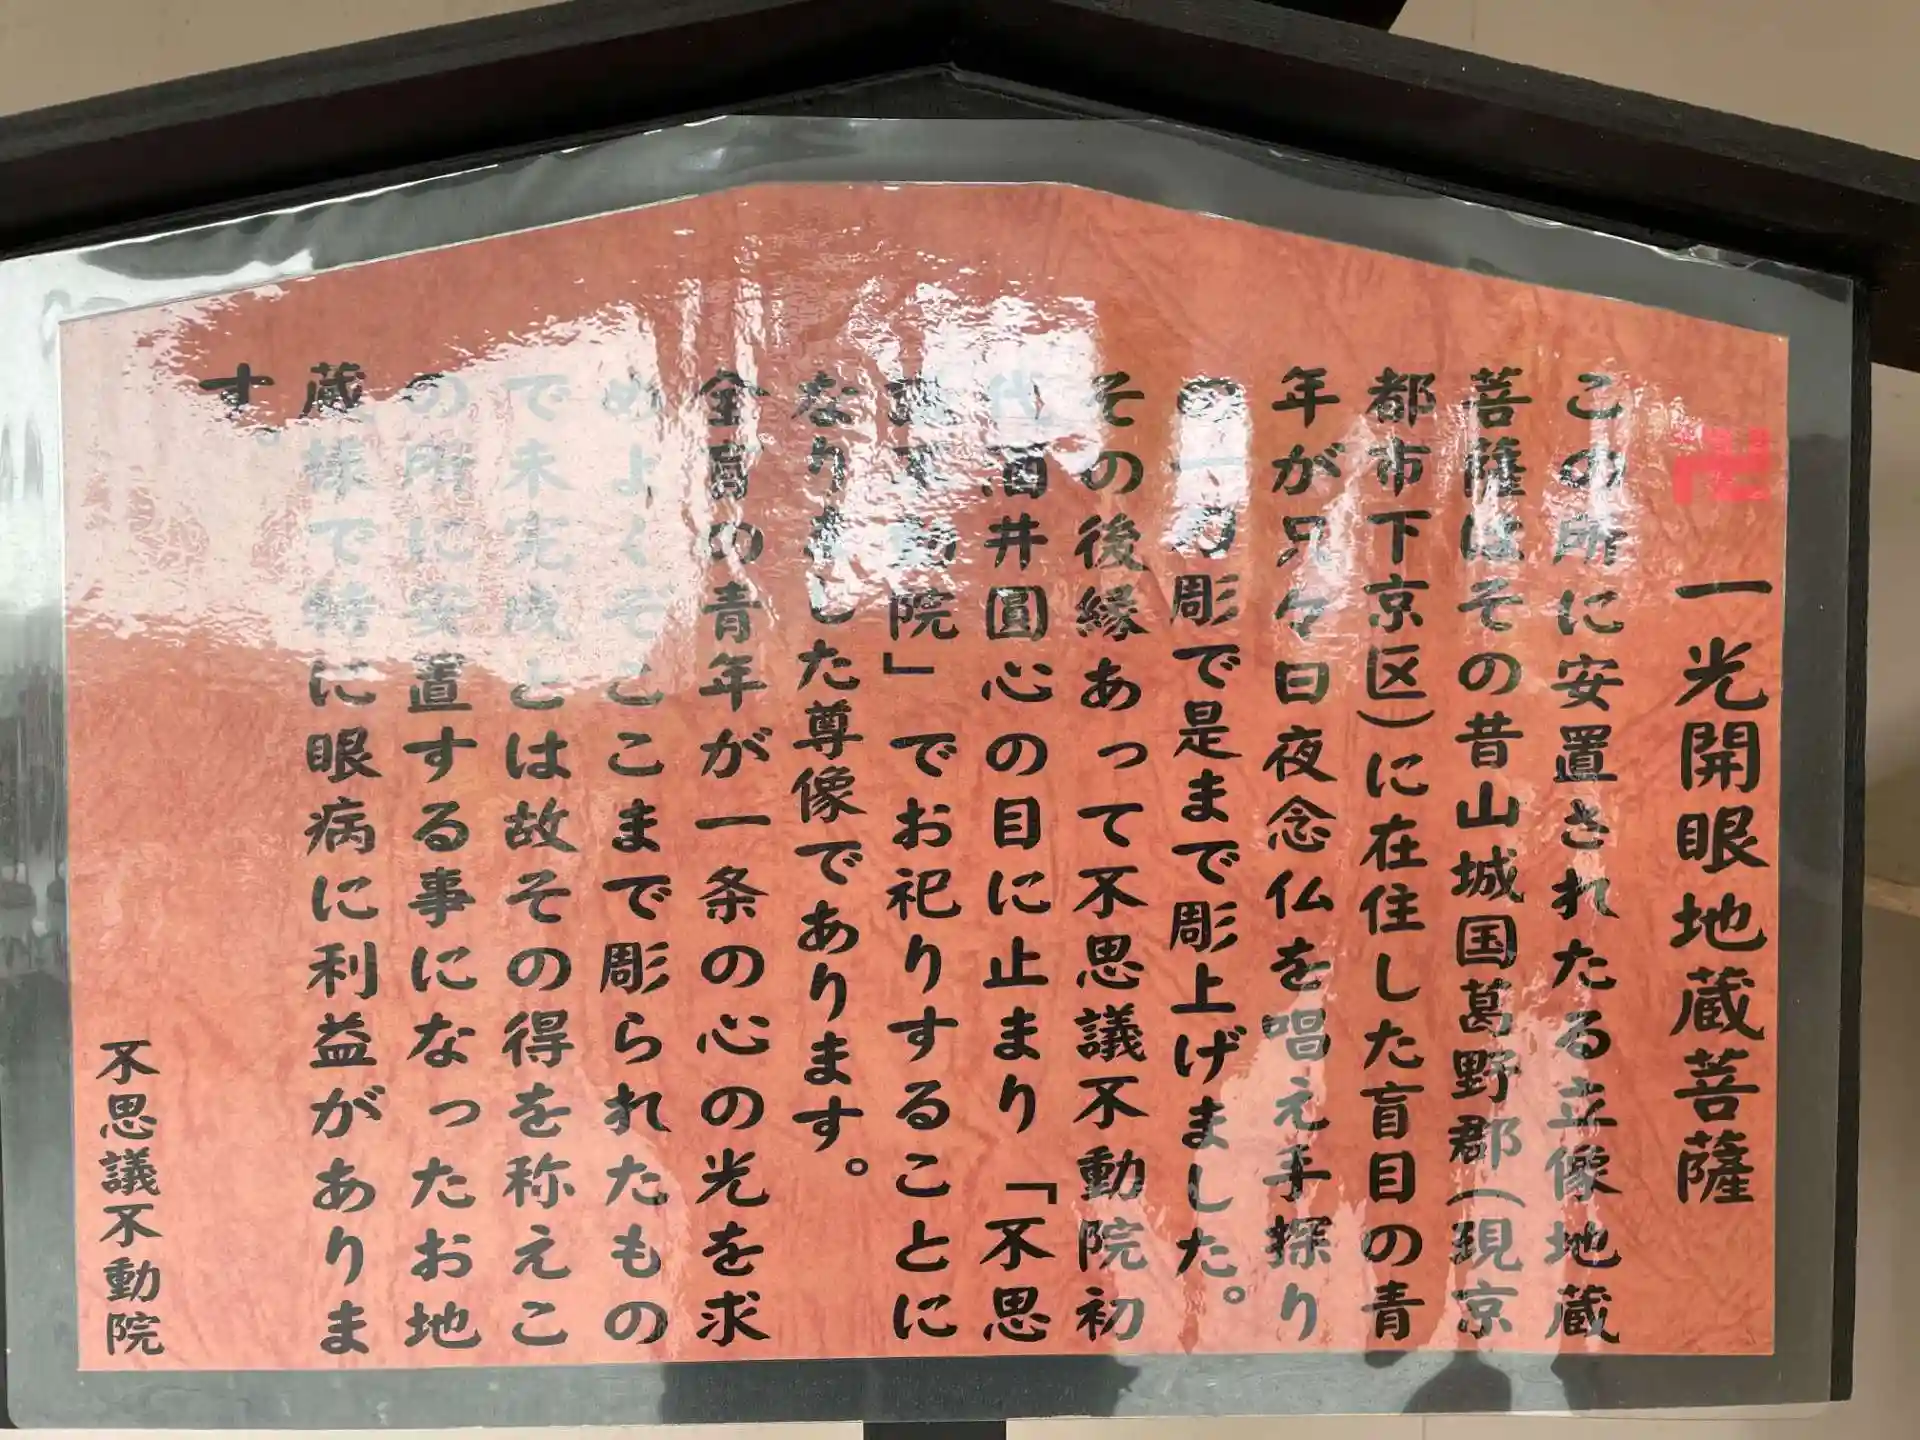 卍 一光開眼地蔵菩薩
この所に安置されたる立像地蔵
菩薩はその昔山城国葛野郡(現京
都市下京区)に在住した盲目の青
年が只々日夜念仏を唱え手探り
の一刀彫で是まで彫上げました。
その後縁あって不思議不動院初
代酒井圓心の目に止まり「不思
議不動院」でお祀りすることに
なりました尊像であります。
全盲の青年が一条の心の光を求
めよくぞここまで彫られたもの
で未完成とは故その得を称えこ
の所に安置する事になったお地
蔵様で特に眼病に利益がありま
す。
不思議不動院